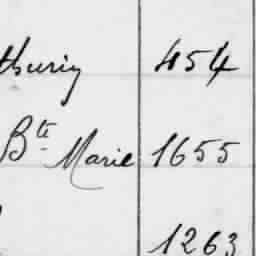 thurin 454
Bte Marie 1655
1263